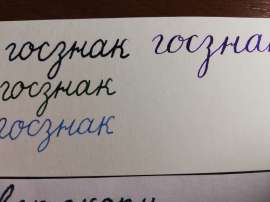 госзнак госзнак
госзнак
госзнак